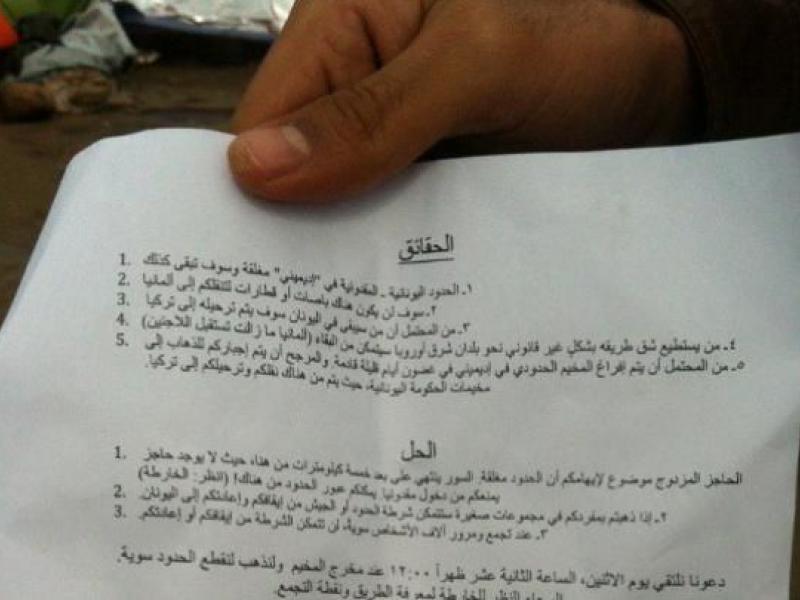 الحقائق
1. ١. الحدود اليونانية - المقدونية في "إديميني" مغلقة وسوف تبقى كذلك
2. ٢. سوف لن يكون هناك باصات أو قطارات لتنقلكم إلى ألمانيا
3. ٣. من المحتمل أن من سيبقى في اليونان سوف يتم ترحيله إلى تركيا
4. ٤. من يستطيع شق طريقه بشكلٍ غير قانوني نحو بلدان شرق أوروبا سيتمكن من البقاء (ألمانيا ما زالت تستقبل اللاجئين)
5. ٥. من المحتمل أن يتم إفراغ المخيم الحدودي في إديميني في غضون أيام قليلة قادمة. والمرجح أن يتم إجباركم للذهاب إلى
مخيمات الحكومة اليونانية، حيث يتم من هناك نقلكم وترحيلكم إلى تركيا.
الحل
1. الحاجز المزدوج موضوع لإيهامكم أن الحدود مغلقة. السور ينتهي على بعد خمسة كيلومترات من هناء، حيث لا يوجد حاجز
يمنعكم من دخول مقدونيا. يمكنكم عبور الحدود من هناك! (انظر: الخارطة)
2. ٢. إذا ذهبتم بمفردكم في مجموعات صغيرة ستتمكن شرطة الحدود أو الجيش من إيقافكم وإعادتكم إلى اليونان.
3. ٣. عند تجمع ومرور آلاف الأشخاص سوية، لن تتمكن الشرطة من إيقافكم أو إعادتكم.
دعونا نلتقي يوم الاثنين، الساعة الثانية عشر ظهراً ١٢:٠٠ عند مخرج المخيم ولنذهب لنقطع الحدود سوية.
الرجاء النظر للخارطة لمعرفة الطريق ونقطة التجمع.